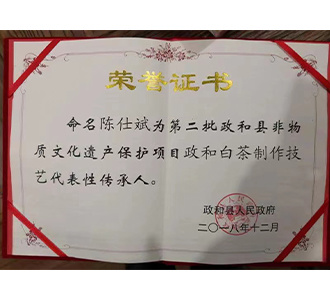 荣誉证书
命名陈仕斌为第二批政和县非物
质文化遗产保护项目政和白茶制作技
艺代表性传承人。
政和县人民政府
二〇一八年十二月